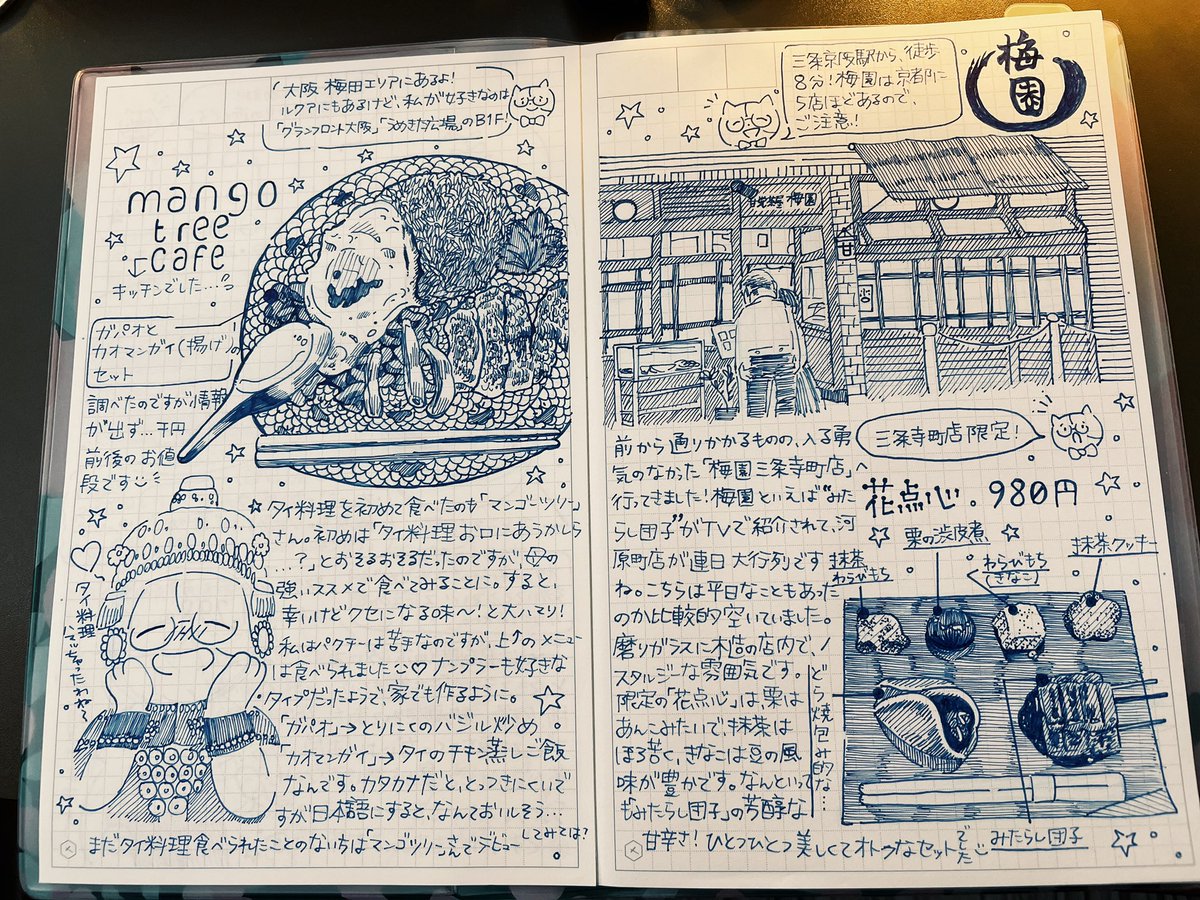 「大阪 梅田エリアにあるよ!
ルクアにもあるけど、私が好きなのは
「グランフロント大阪」「うめきた広場」のB1F!
mango
tree
cafe
キッチンでした…っ
ガパオと
カオマンガイ(揚げ)の
セット
調べたのですが情報
が出ず…千円
前後のお値
段です
タイ料理
タイ料理を初めて食べたのも「マンゴーツリー」
さん。初めは「タイ料理お口にあうかしら
…?」とおそるおそるだったのですが、母の
強いススメで食べてみることに。すると、
辛いけどクセになる味〜!と大ハマリ!
私はパクチーは苦手なのですが、上↑のメニュー
は食べられました♡ナンプラーも好きな
タイプだったようで、家でも作るように。
「ガパオ」→とりにくのバジル炒め
「カオマンガイ」→タイのチキン蒸しご飯
なんです。カタカナだと、とっつきにくいで
すが日本語にすると、なんておいしそう…
まだタイ料理食べられたことのない方は「マンゴツリー」さんでデビュー
してみては?
三条京阪駅から、徒歩
8分!梅園は京都に
5店ほどあるので、
ご注意!
梅園
梅園
甘
三条寺町店限定!
前から通りかかるものの、入る勇
気のなかった「梅園三条寺町店」へ
行ってきました!梅園といえば"みた
らし団子"がTVで紹介されて、河
原町店が連日大行列です
ね。こちらは平日なこともあった
のか比較的空いていました。
磨りガラスに木造の店内で、ノ
スタルジーな雰囲気です。
限定の「花点心」は、栗は
あんこみたいで、抹茶は
ほろ苦く、きなこは豆の風
味が豊かです。なんといって
も「みたらし団子」の芳醇な
甘辛さ!ひとつひとつ美しくてオトクなセット
でした
花点心. 980円
栗の渋皮煮
抹茶
わらびもち
わらびもち
(きなこ)
抹茶クッキー
どら焼包み的な…
みたらし団子